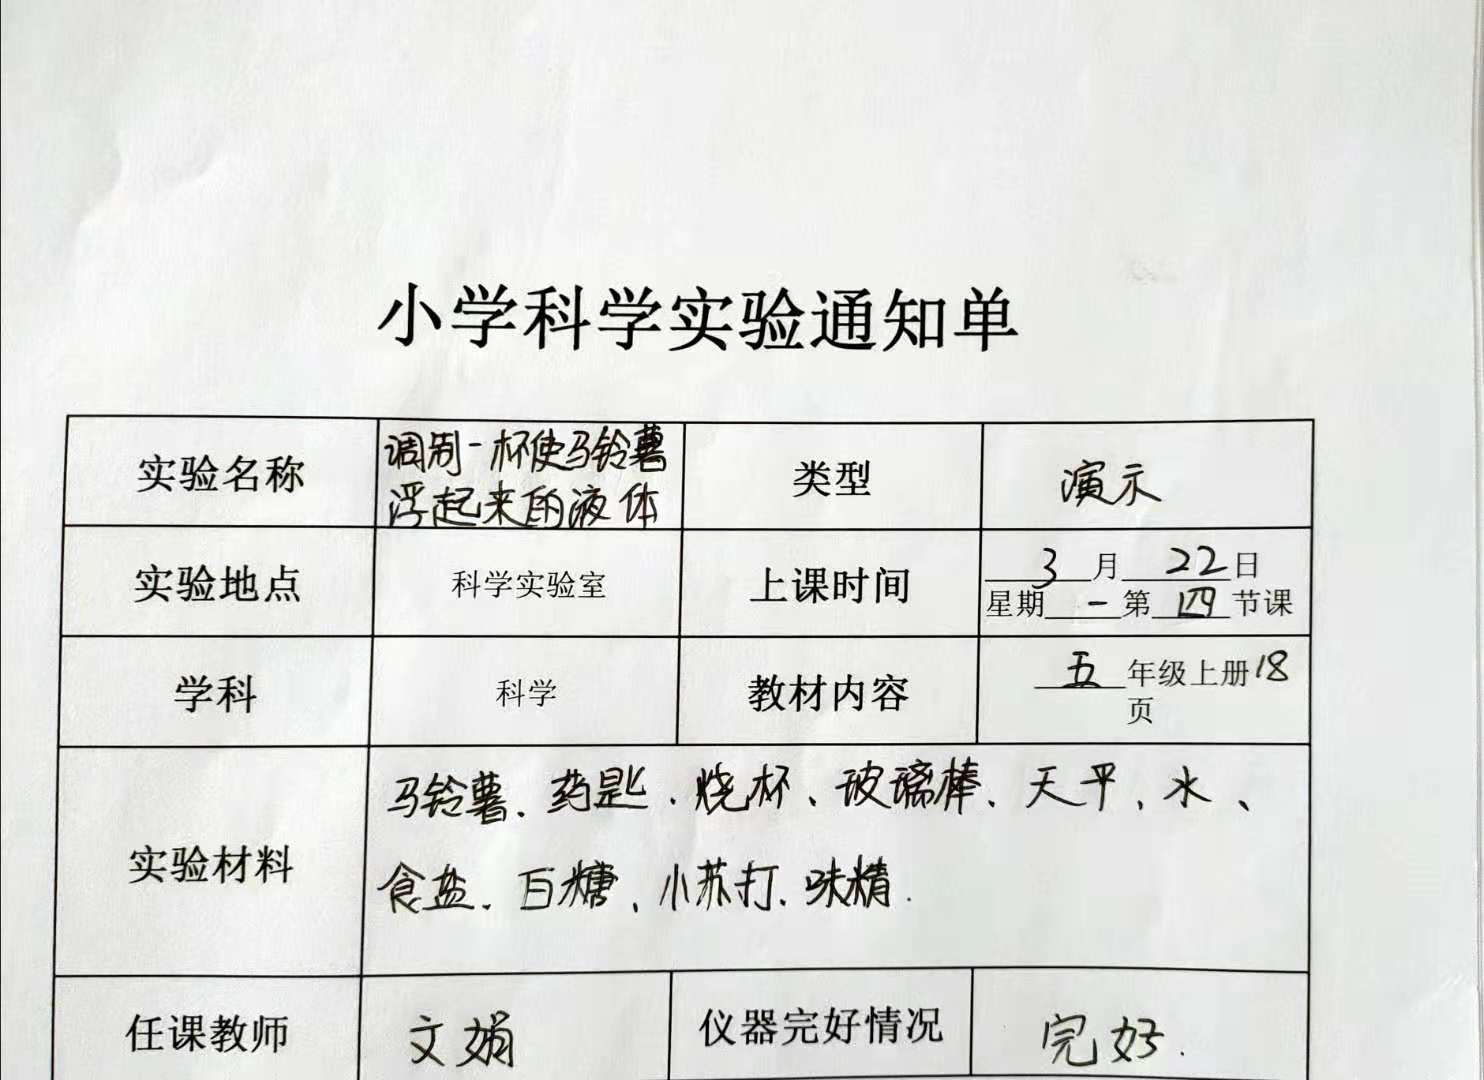 小学科学实验通知单
实验名称 调制一杯使马铃薯浮起来的液体 类型 演示
实验地点 科学实验室 上课时间 3月22日
星期一第四节课
学科 科学 教材内容 五年级上册18
页
实验材料 马铃薯、药匙、烧杯、玻璃棒、天平、水、
食盐、白糖、小苏打、味精.
任课教师 文娟 仪器完好情况 完好.